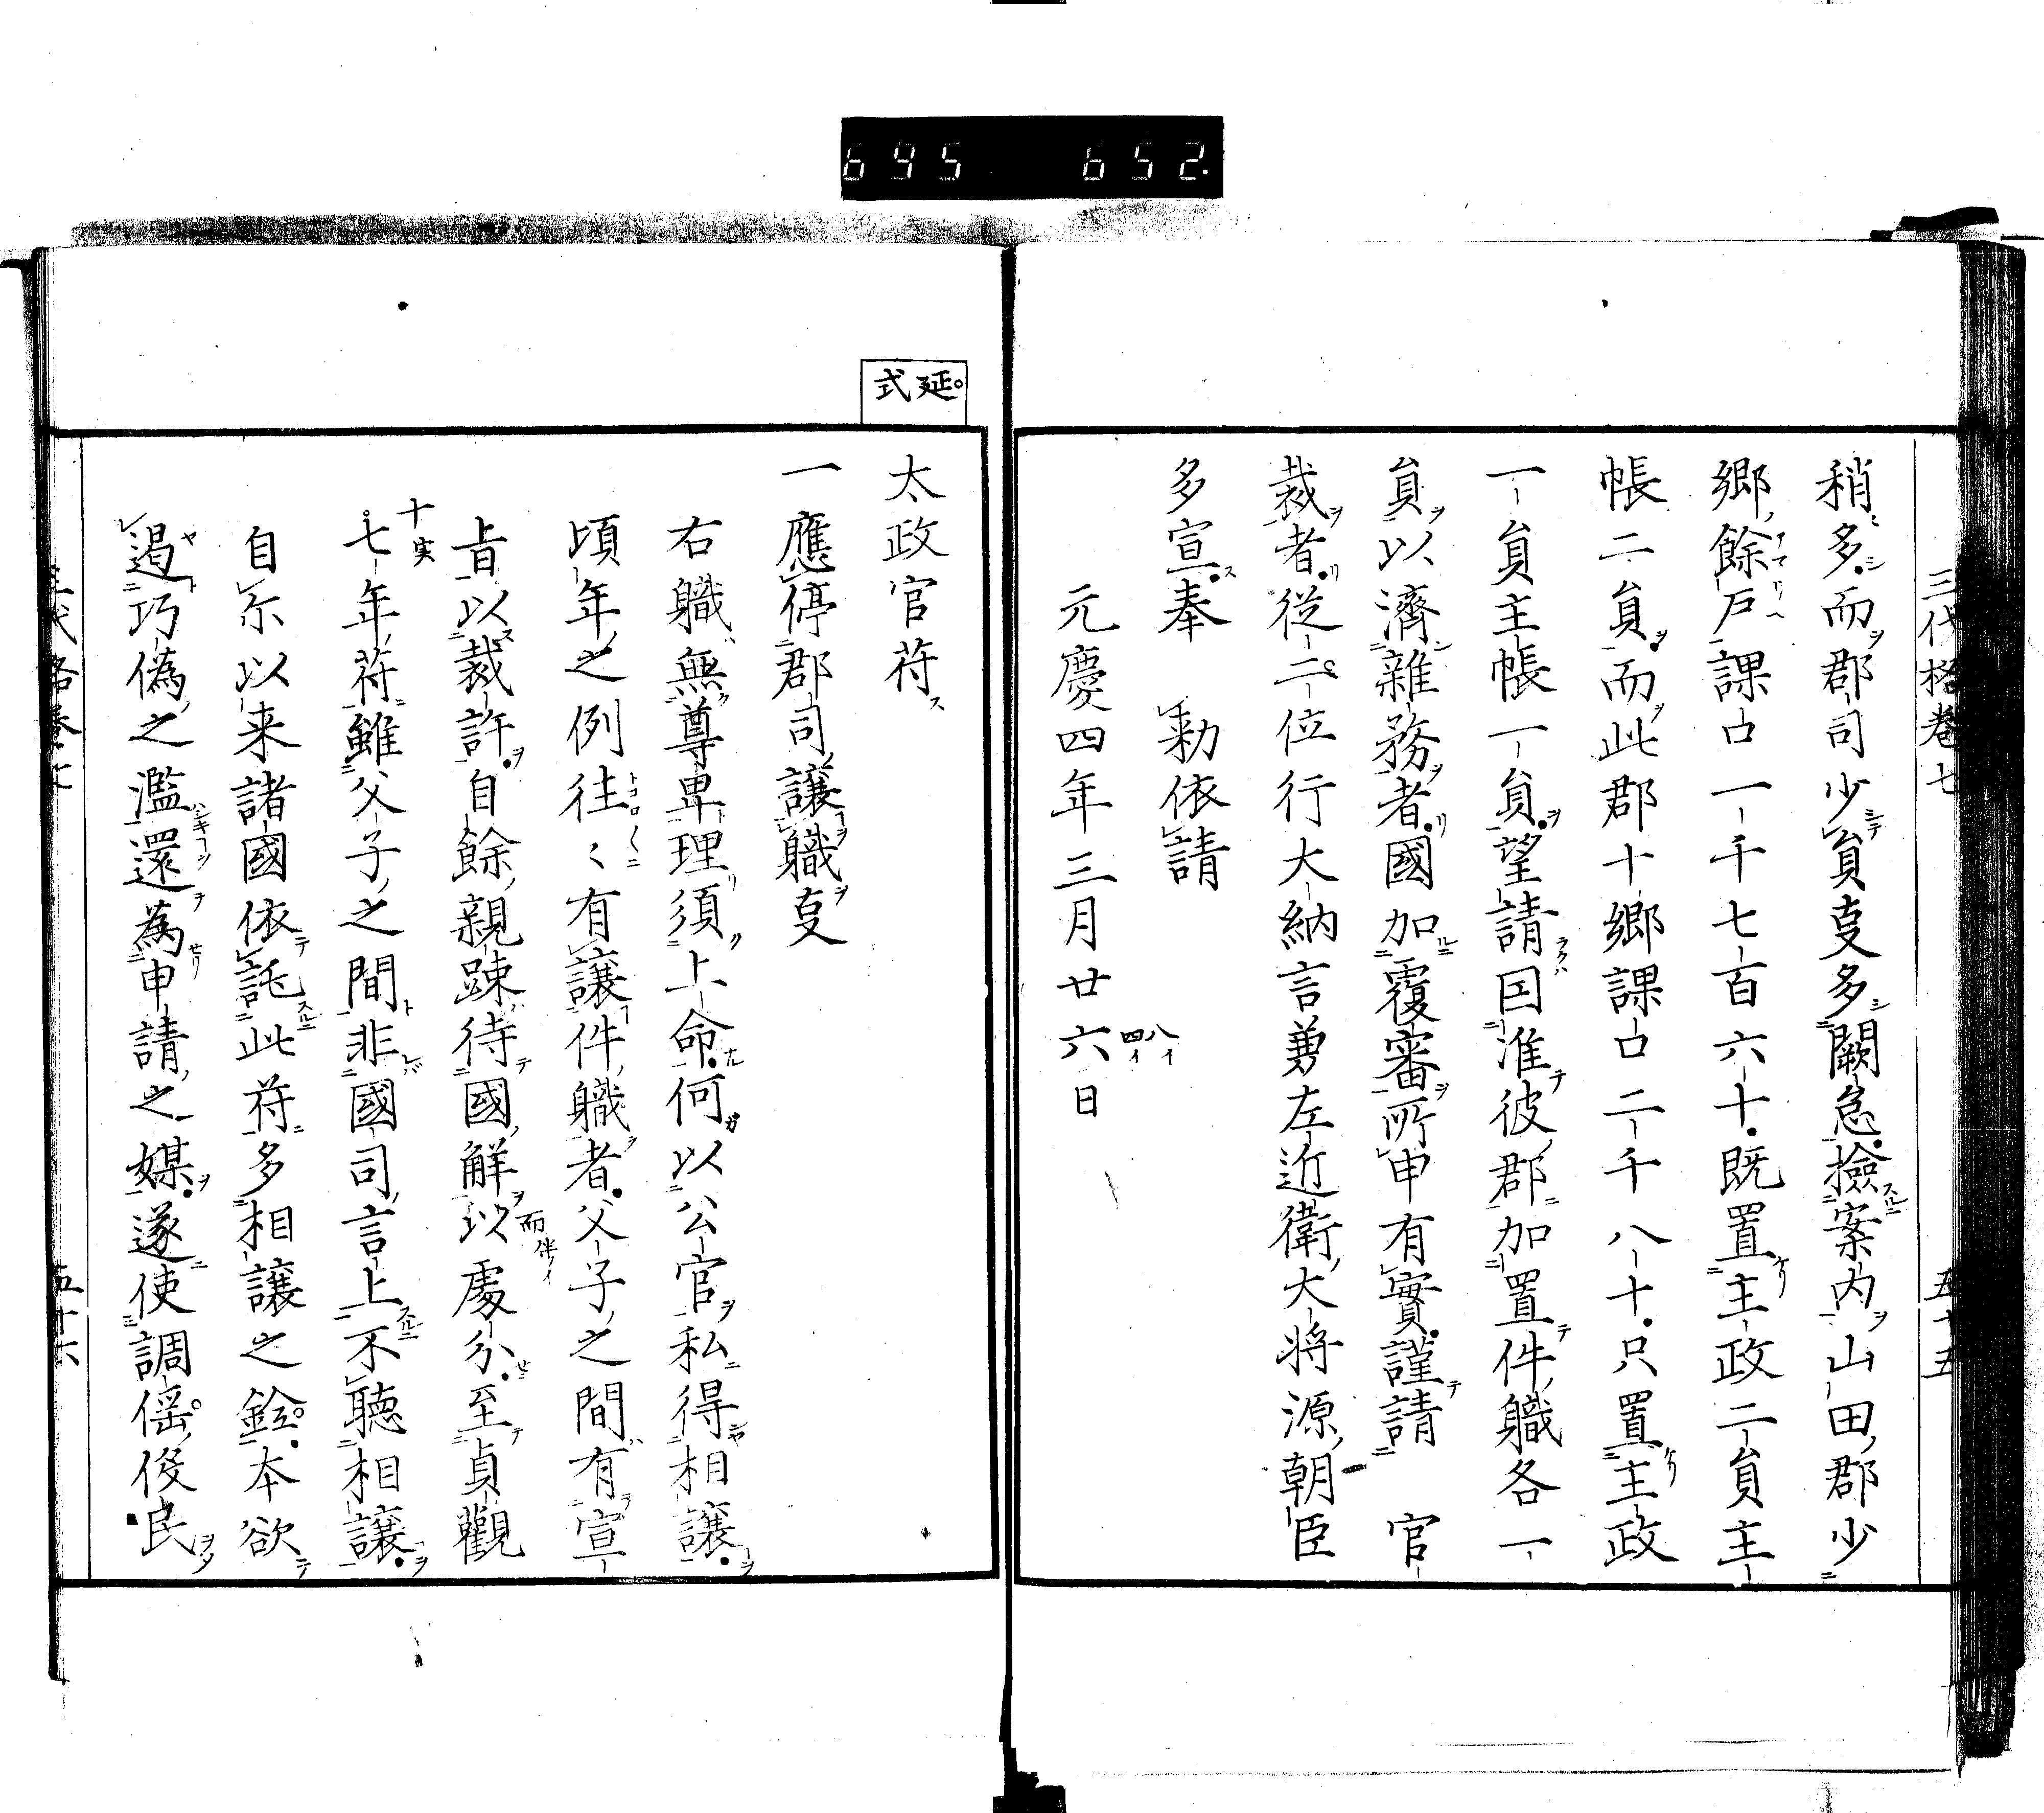 695 652.
三代格巻七 五十五
稍多而郡司少負㕝多闕怠撿案内山田郡少
郷餘戸課口一千七百六十既置主政二負主
帳二負而此郡十郷課口二千八十只置主政
一負主帳一負望請因准彼郡加置件職各一
負以濟雜務者國加覆審所申有實謹請 官
裁者從二位行大納言兼左近衛大将源朝臣
多宣奉 勅依請
元慶四年三月廿六日
八イ
四イ
延式
太政官苻
一應停郡司譲職㕝
右職無尊卑理須上命何以公官私得相譲
頃年之例往〻有譲件職者父子之間有宣
旨以裁許自餘親踈待國解以處分至貞觀
而伴イ
七年苻雖父子之間非國司言上不聴相譲
十実
自尓以来諸國依託此苻多相譲之銓本欲
遏巧偽之濫還為申請之媒遂使調傜俊民
三代格巻七 五十六